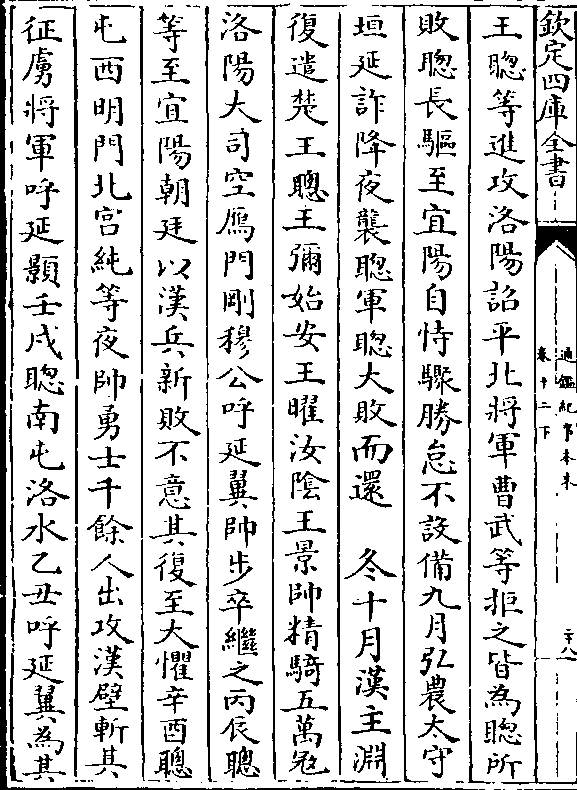 欽定四庫全書
通鑑紀事本末
卷十二下
二十八
王聰等進攻洛陽詔平北將軍曹武等拒之皆為聰所
敗聰長驅至宜陽自恃驟勝怠不設備九月弘農太守
垣延詐降夜襲聰軍聰大敗而還　冬十月漢主淵
復遣楚王聰王彌始安王曜汝陰王景帥精騎五萬冦
洛陽大司空鴈門剛穆公呼延翼帥步卒繼之丙辰聰
等至宜陽朝廷以漢兵新敗不意其復至大懼辛酉聰
屯西明門北宮純等夜帥勇士千餘人出攻漢壁斬其
征虜將軍呼延顥壬戌聰南屯洛水乙丑呼延翼為其